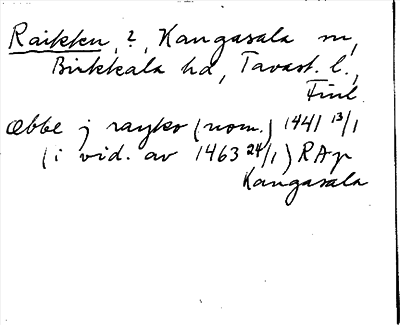 Raikken, ?, Kangasala sn,
Birkkala hd, Tavast. l.,
Finl.
Æbbe j rayko (nom.) 1441 13/1
(i vid. av 1463 24/1) RAp
Kangasala